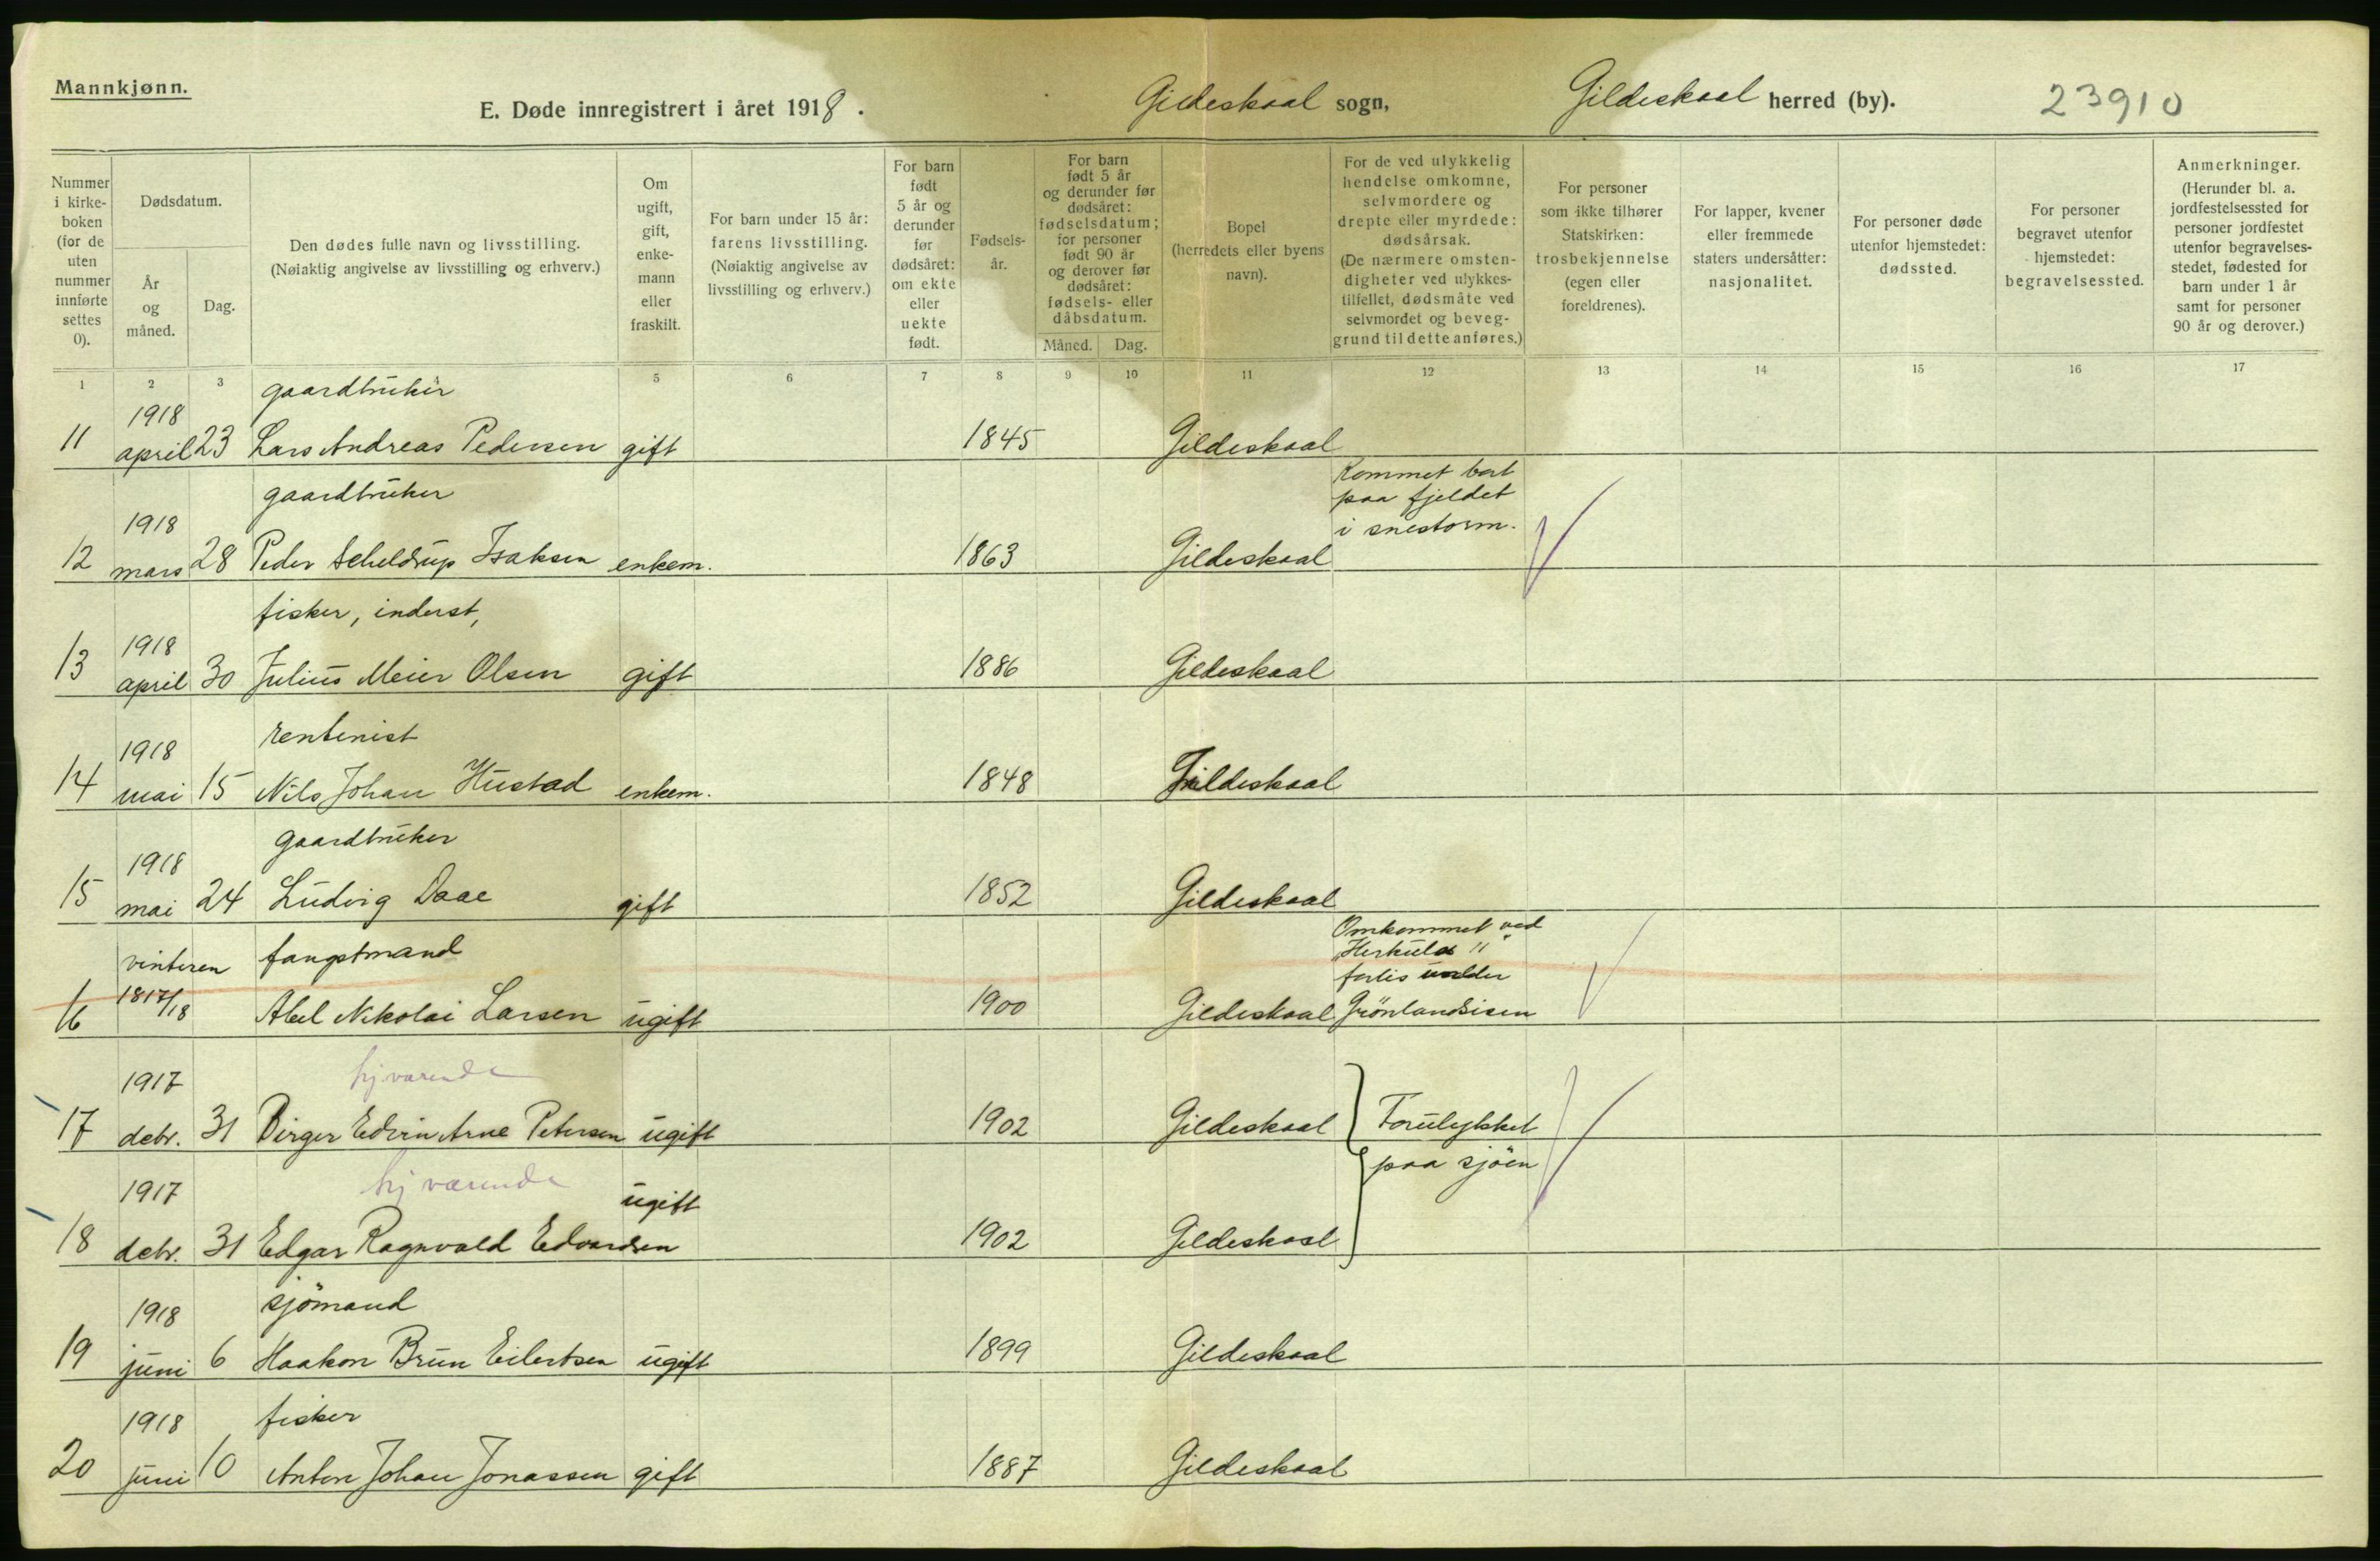 Mannkjønn.
E. Døde innregistrert i året 1918. Gildeskaal sogn, Gildeskaal herred (by). 23910
Nummer i kirkeboken (for de uten nummer innførte settes 0).
Dødsdatum.
År og måned.
Dag.
Den dødes fulle navn og livsstilling. (Nøiaktig angivelse av livsstilling og erhverv.)
Om ugift, gift, enkemann eller fraskilt.
For barn under 15 år: farens livsstilling. (Nøiaktig angivelse av livsstilling og erhverv.)
For barn født 5 år og derunder før dødsåret: om ekte eller uekte født.
Fødselsår.
For barn født 5 år og derunder før dødsåret: fødselsdatum; for personer født 90 år og derover før dødsåret: fødsels- eller dåbsdatum.
Måned. Dag.
Bopel (herredets eller byens navn).
For de ved ulykkelig hendelse omkomne, selvmordere og drepte eller myrdede: dødsårsak. (De nærmere omstendigheter ved ulykkestilfellet, dødsmåte ved selvmordet og beveggrund til dette anføres.)
For personer som ikke tilhører Statskirken: trosbekjennelse (egen eller foreldrenes).
For lapper, kvener eller fremmede staters undersåtter: nasjonalitet.
For personer døde utenfor hjemstedet: dødssted.
For personer begravet utenfor hjemstedet: begravelsessted.
Anmerkninger. (Herunder bl. a. jordfestelsessted for personer jordfestet utenfor begravelsesstedet, fødested for barn under 1 år samt for personer 90 år og derover.)
1 2 3 4 5 6 7 8 9 10 11 12 13 14 15 16 17
1918 gaardbruker
11 april 23 Lars Andreas Pedersen gift 1845 Gildeskaal
1918 gaardbruker Kommet bort paa fjeldet i snestorm.
12 mars 28 Peder Scheldrup Isaksen enkem. 1863 Gildeskaal
1918 fisker, inderst,
13 april 30 Julius Meier Olsen gift 1886 Gildeskaal
1918 rentenist
14 mai 15 Nils Johan Hustad enkem. 1848 Gildeskaal
1918 gaardbruker
15 mai 24 Ludvig Daae gift 1852 Gildeskaal
vinteren fangstmand Omkommet ved "Herkules II" forlis under
16 1817/18 Abel Nikolai Larsen ugift 1900 Gildeskaal Grönlandsisen
1917 hjværende
17 debr. 31 Birger Edvin Arne Petersen ugift 1902 Gildeskaal Forulykket
1917 hjværende ugift paa sjöen
18 debr. 31 Edgar Ragnvald Edvardsen 1902 Gildeskaal
1918 sjömand
19 juni 6 Haakon Brun Eilertsen ugift 1899 Gildeskaal
1918 fisker
20 juni 10 Anton Johan Jonassen gift 1887 Gildeskaal